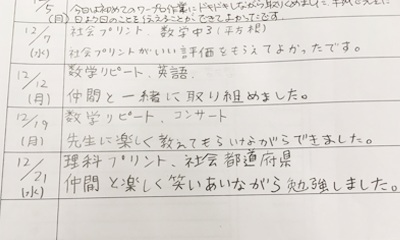 12/5 今日は初めてのワープロ作業にドキドキしながら取りくめました。
(月) 日よう日のことを伝えることができてよかったです。
12/7 社会プリント、数学中3(平方根)
(水) 社会プリントがいい評価をもらえてよかったです。
12/12 数学リピート、英語.
(月) 仲間と一緒に取り組めました。
12/19 数学リピート、コンサート
(月) 先生に楽しく教えてもらいながらできました。
12/21 理科プリント、社会都道府県
(水) 仲間と楽しく笑いあいながら勉強しました。